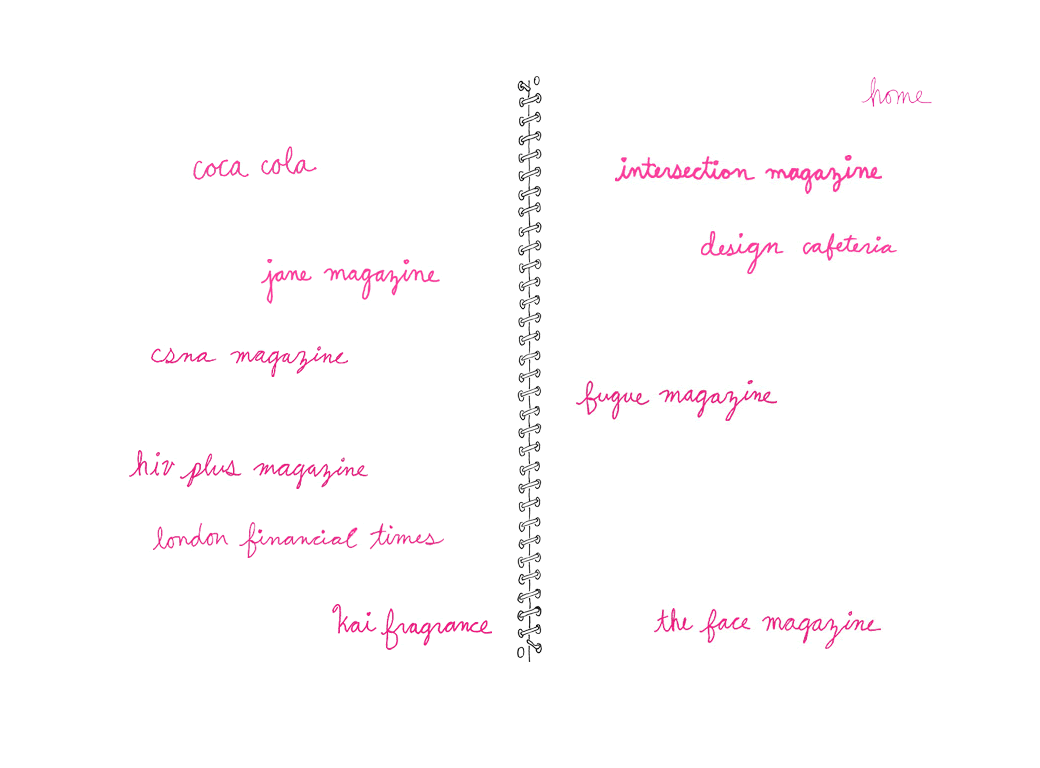 coca cola
jane magazine
csna magazine
hiv plus magazine
london financial times
kai fragrance
home
intersection magazine
design cafeteria
fugue magazine
the face magazine